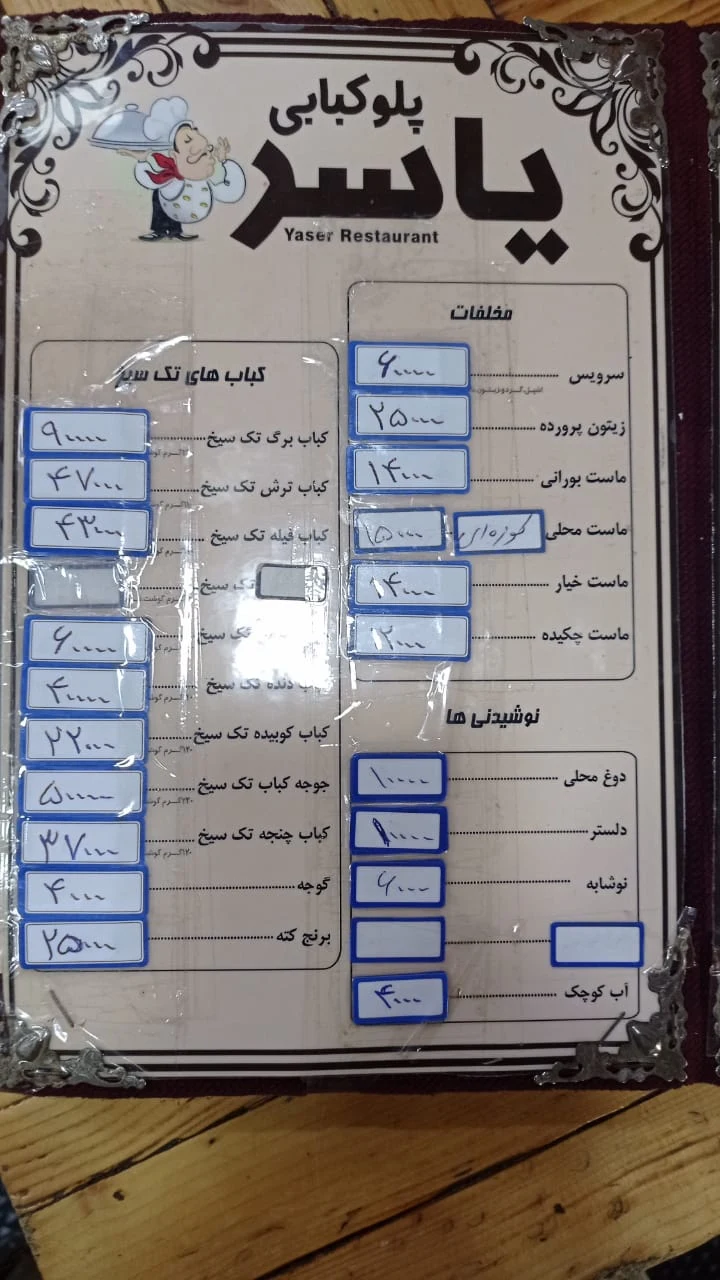 پلوکبابی
یاسر
Yaser Restaurant
مخلفات
سرویس ۶۰۰۰۰
زیتون پرورده ۲۵۰۰۰
ماست بورانی ۱۴۰۰۰
ماست محلی کوزه‌ای ۱۵۰۰۰
ماست خیار ۱۴۰۰۰
ماست چکیده ۱۲۰۰۰
نوشیدنی ها
دوغ محلی ۱۰۰۰۰
دلستر ۱۰۰۰۰
نوشابه ۶۰۰۰
آب کوچک ۴۰۰۰
کباب های تک سیخ
کباب برگ تک سیخ ۹۰۰۰۰
کباب ترش تک سیخ ۴۷۰۰۰
کباب فیله تک سیخ ۴۳۰۰۰
تک سیخ
تک سیخ ۶۰۰۰۰
دنده تک سیخ ۴۰۰۰۰
کباب کوبیده تک سیخ ۲۲۰۰۰
جوجه کباب تک سیخ ۵۰۰۰۰
کباب چنجه تک سیخ ۳۷۰۰۰
گوجه ۴۰۰۰
برنج کته ۲۵۰۰۰